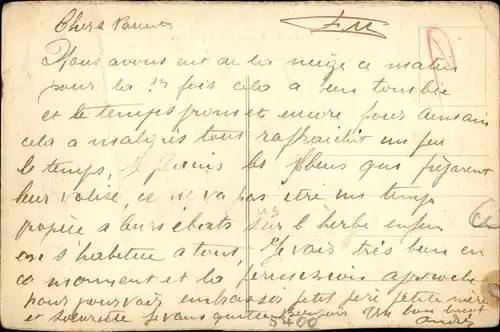 Chers Parents
F M
Nous avons eut de la neige ce matin
pour la 1re fois cela a bien tombé
et le temps promet encore pour demain
cela a malgrés tout raffraichit un peu
le temps, je plains les bleus qui préparent
leur valise, ce ne va pas etre un temps
propice a leurs ébats sur l herbe enfin
on s'habitue a tout, Je vais très bien en
ce moment et la permission approche
pour pouvoir embrasser petit père petite mère
et soeurette je vous quitte un bon baiser
André
5400